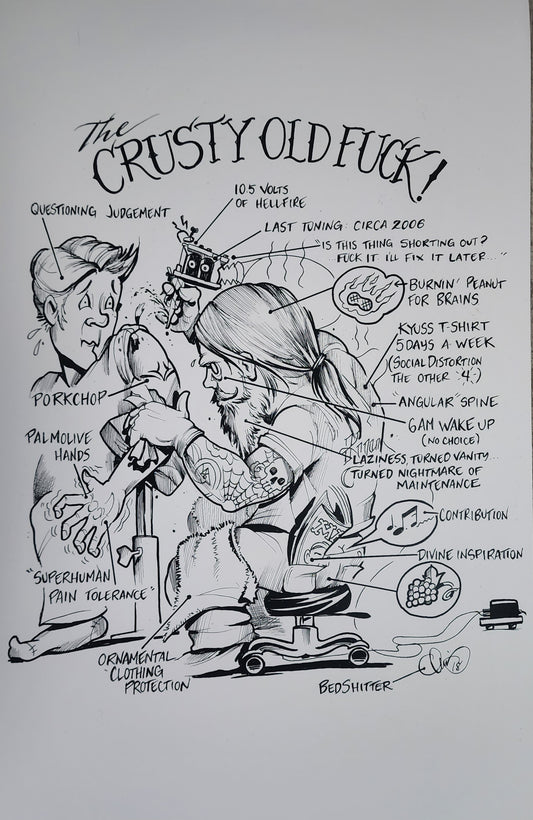 The
CRUSTY OLD FUCK!
10.5 VOLTS
OF HELLFIRE
QUESTIONING JUDGEMENT
LAST TUNING: CIRCA 2006
"IS THIS THING SHORTING OUT?
FUCK IT I'LL FIX IT LATER..."
BURNIN' PEANUT
FOR BRAINS
KYUSS T-SHIRT
5 DAYS A WEEK
(SOCIAL DISTORTION
THE OTHER "4")
PORKCHOP
"ANGULAR" SPINE
6AM WAKE UP
(NO CHOICE)
PALMOLIVE
HANDS
LAZINESS, TURNED VANITY...
TURNED NIGHTMARE OF
MAINTENANCE
CONTRIBUTION
DIVINE INSPIRATION
"SUPERHUMAN
PAIN TOLERANCE"
ORNAMENTAL
CLOTHING
PROTECTION
BEDSHITTER
18